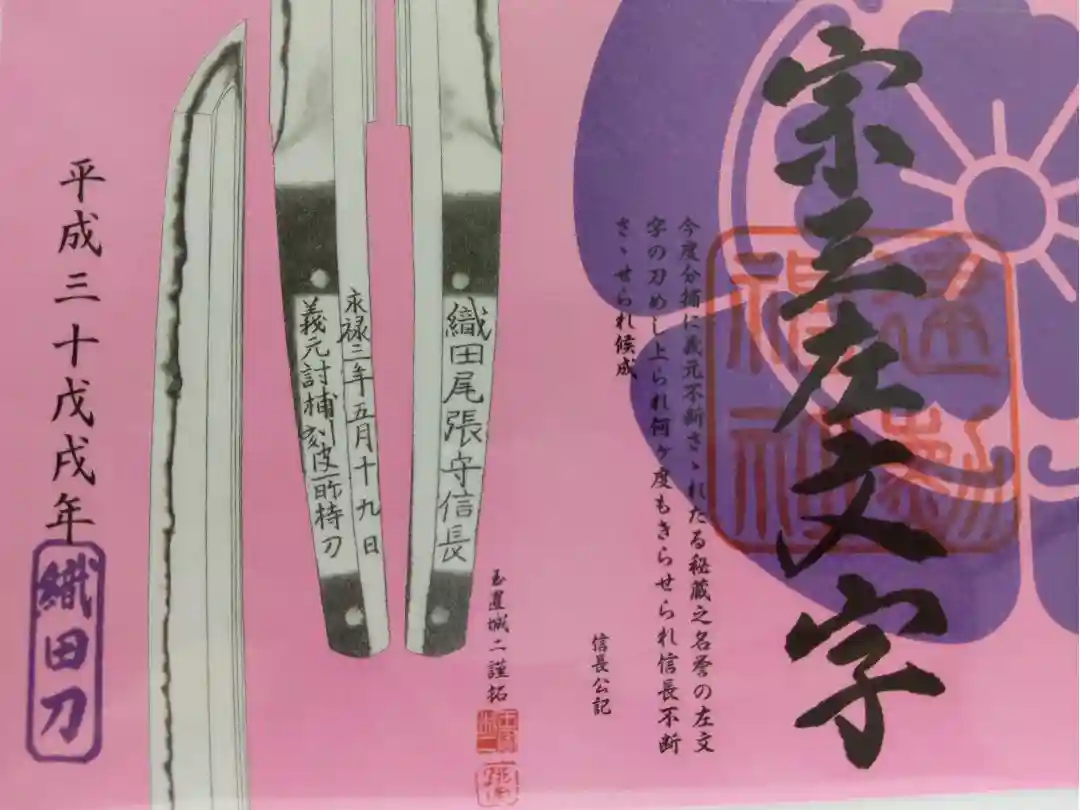 宗三左文字
今度分捕に義元不断さゝれたる秘蔵之名誉の左文
字の刀めし上られ何ヶ度もきらせられ信長不断
さゝせられ候成
信長公記
織田尾張守信長
永禄三年五月十九日
義元討捕刻彼所持刀
玉置城二謹拓
平成三十戊戌年
織田刀
建勲
神社